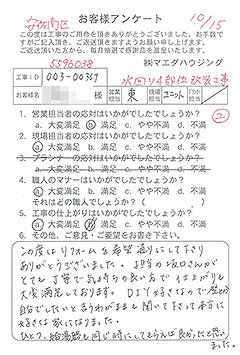 安佐南区
お客様アンケート
10/15
この度は工事のご用命を頂きありがとうございました。お手数で
すがご記入頂き、ご返送頂きますようお願い申し上げます。
ご返送頂いた方から、毎月抽選で感謝品を進呈いたします。
5596038
㈱マエダハウジング
工事ID
003-00359
水回り4点
改装工事
お客様名
様
営業担当
東
現場担当
ユニット
1. 営業担当者の応対はいかがでしたでしょうか?
a. 大変満足 b. 満足 c. やや不満 d. 不満
2. 現場担当者の応対はいかがでしたでしょうか?
a. 大変満足 b. 満足 c. やや不満 d. 不満
3. プランナーの応対はいかがでしたでしょうか?
a. 大変満足 b. 満足 c. やや不満 d. 不満
4. 職人のマナーはいかがでしたでしょうか?
a. 大変満足 b. 満足 c. やや不満 d. 不満
それはどの職人でしょうか? ( )
5. 工事の仕上がりはいかがでしたでしょうか?
a. 大変満足 b. 満足 c. やや不満 d. 不満
6. その他、ご意見・ご要望をお書き下さい。
この度はリフォームを希望通りにして下さり
ありがとうございました。担当の
さんが
とても丁寧で気持ちの良い方で仕上がりも
大変満足しております。DIY好きなので壁
自分でしたいと言うわがままも聞いて下って本当に
好きな家になりました。
ひとつ、給湯器も同じ時にしてもらえば良かったと思い
ました。